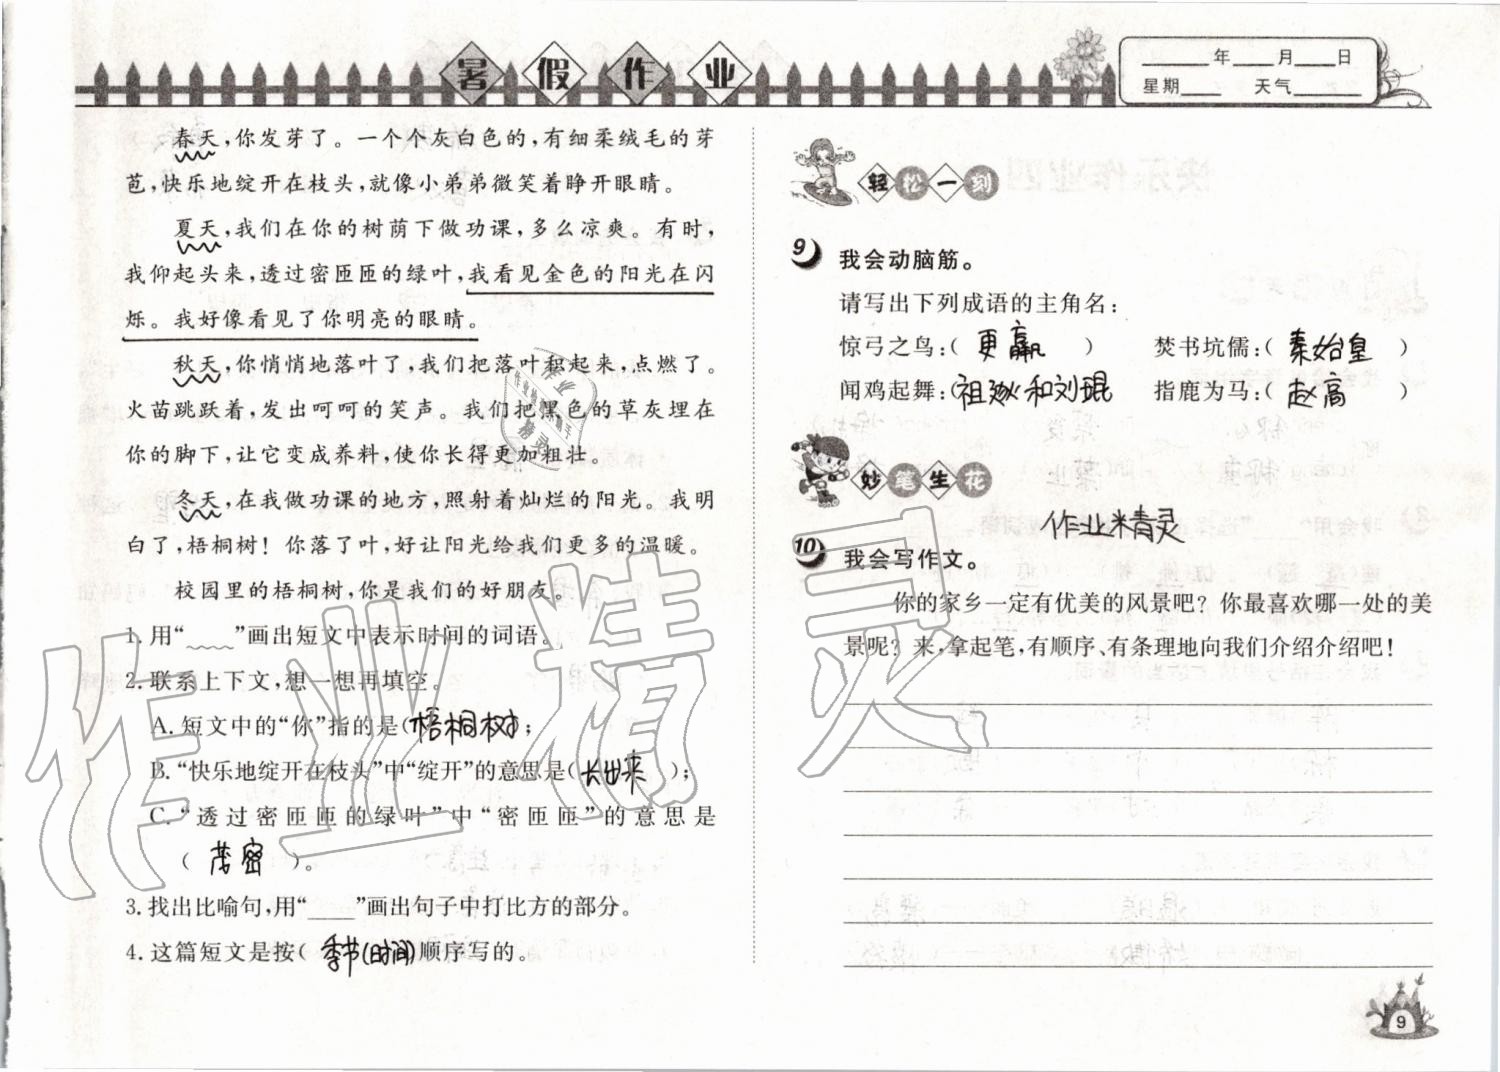 暑假作业
____年____月____日
星期____ 天气________
春天,你发芽了。一个个灰白色的,有细柔绒毛的芽
苞,快乐地绽开在枝头,就像小弟弟微笑着睁开眼睛。
夏天,我们在你的树荫下做功课,多么凉爽。有时,
我仰起头来,透过密匝匝的绿叶,我看见金色的阳光在闪
烁。我好像看见了你明亮的眼睛。
秋天,你悄悄地落叶了,我们把落叶积起来,点燃了。
火苗跳跃着,发出呵呵的笑声。我们把黑色的草灰埋在
你的脚下,让它变成养料,使你长得更加粗壮。
冬天,在我做功课的地方,照射着灿烂的阳光。我明
白了,梧桐树!你落了叶,好让阳光给我们更多的温暖。
校园里的梧桐树,你是我们的好朋友。
1.用“﹏﹏”画出短文中表示时间的词语。
2.联系上下文,想一想再填空。
A.短文中的“你”指的是(梧桐树);
B.“快乐地绽开在枝头”中“绽开”的意思是(长出来);
C.“透过密匝匝的绿叶”中“密匝匝”的意思是
(茂密)。
3.找出比喻句,用“____”画出句子中打比方的部分。
4.这篇短文是按(季节(时间))顺序写的。
轻松一刻
9 我会动脑筋。
请写出下列成语的主角名:
惊弓之鸟:(更羸) 焚书坑儒:(秦始皇)
闻鸡起舞:(祖逖和刘琨) 指鹿为马:(赵高)
妙笔生花
作业精灵
10 我会写作文。
你的家乡一定有优美的风景吧?你最喜欢哪一处的美
景呢?来,拿起笔,有顺序、有条理地向我们介绍介绍吧!
作业精灵
9